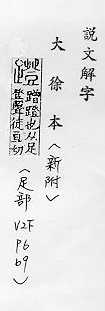 説文解字
大徐本〈新附〉
蹭蹬也从足
登聲徒亘切
〈足部
V2F
P6
b9〉